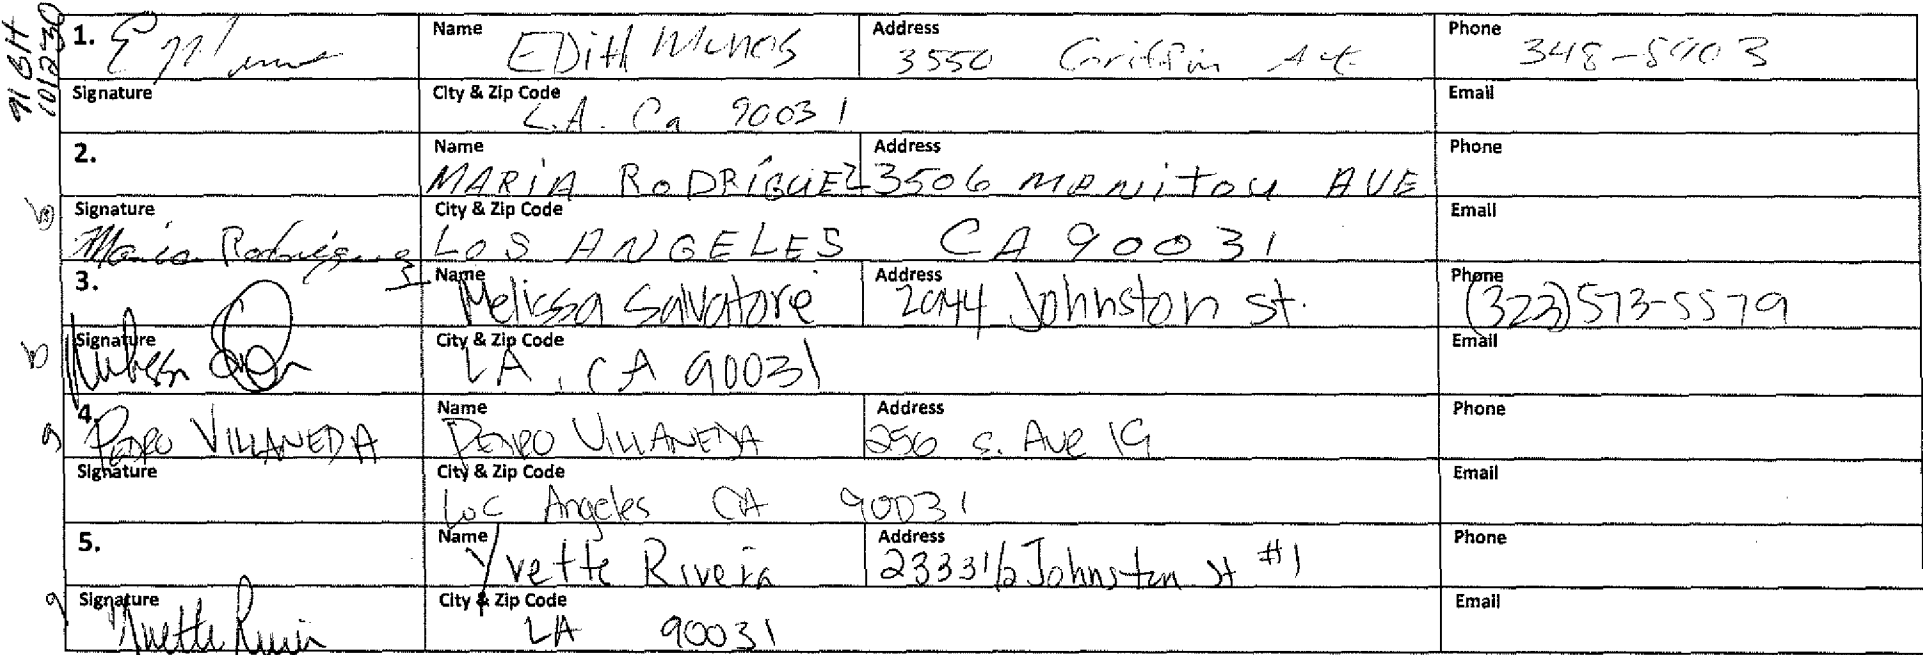 1. Name EDitH Munos Address 3550 Griffin Ave Phone 348-5903
Signature City & Zip Code L.A. Ca 90031 Email
2. Name MARÍA RODRÍGUEZ Address 3506 Manitou AVE Phone
Signature Maria Rodriguez City & Zip Code LOS ANGELES CA 90031 Email
3. Name Melissa Salvatore Address 2944 Johnston st. Phone (323)573-5579
Signature Melissa City & Zip Code LA, CA 90031 Email
4. PEDRO VILLANEDA Name PEDRO VILLANEDA Address 256 S. Ave 19 Phone
Signature City & Zip Code Los Angeles CA 90031 Email
5. Name Yvette Rivera Address 2333 1/2 Johnston st #1 Phone
Signature Yvette Rivera City & Zip Code LA 90031 Email